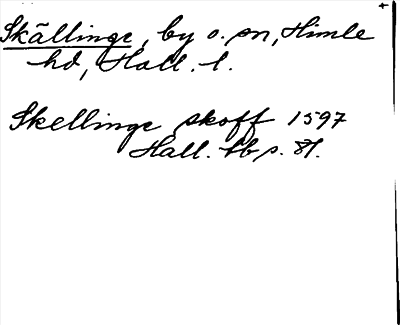 Skällinge, by o. sn, Himle
hd, Hall. l.
Skellinge skoff 1597
Hall. tb s. 81.